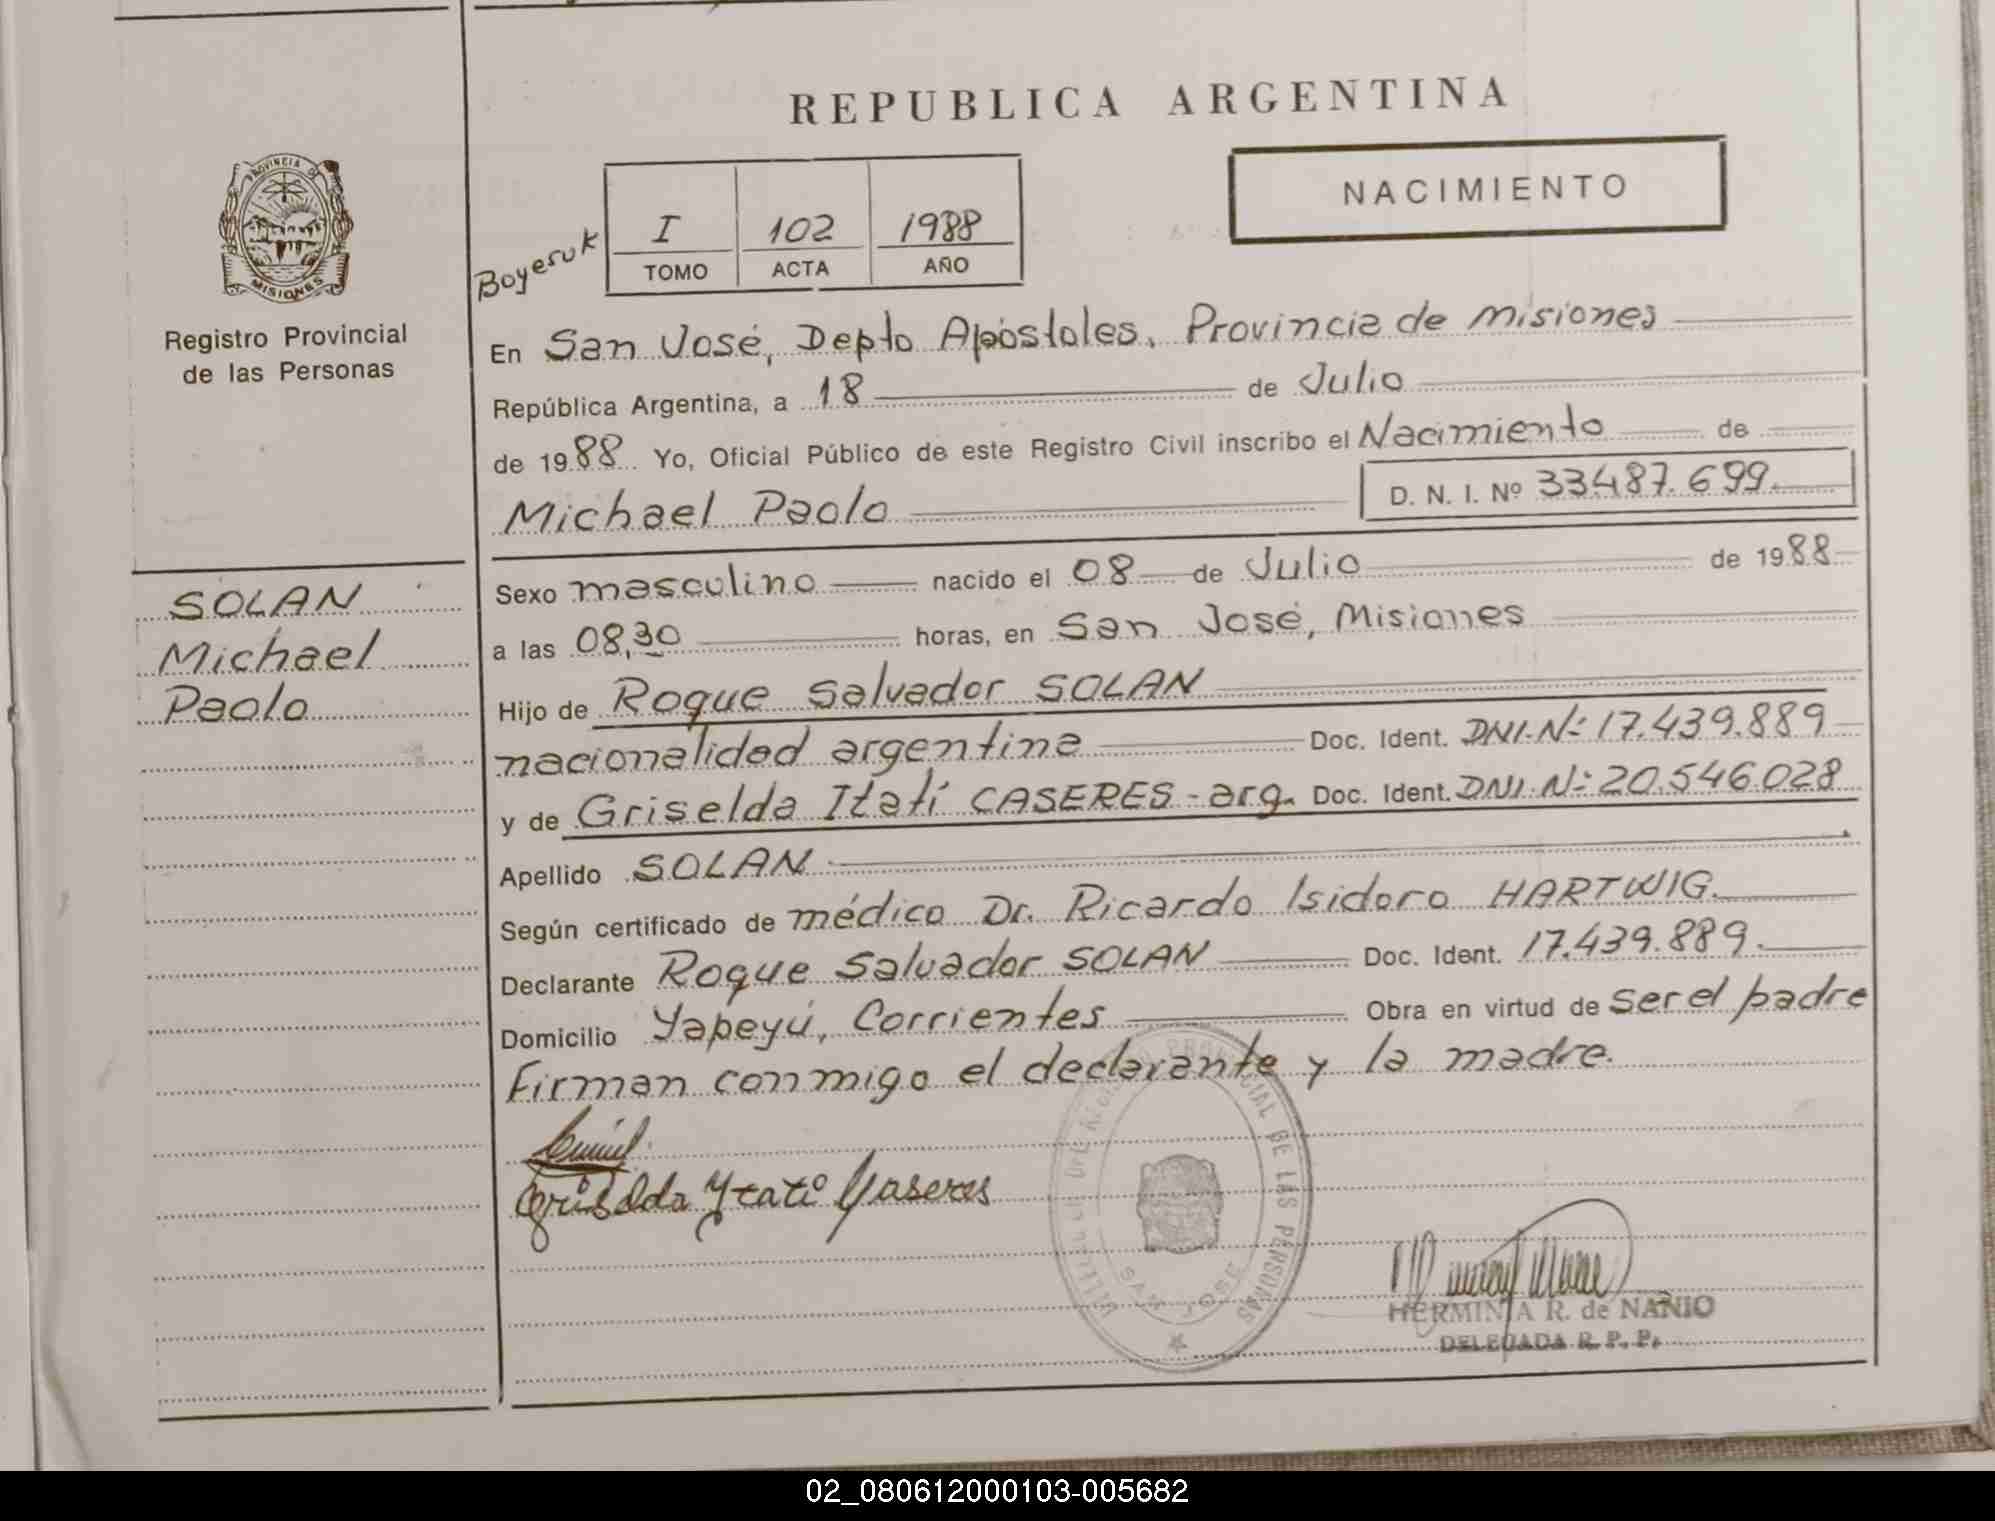 REPUBLICA ARGENTINA
NACIMIENTO
PROVINCIA DE
MISIONES
Registro Provincial
de las Personas
Boyeruk
I 102 1988
TOMO ACTA AÑO
En San José, Depto Apóstoles, Provincia de Misiones
República Argentina, a 18 de Julio
de 1988 Yo, Oficial Público de este Registro Civil inscribo el Nacimiento de
Michael Paolo D. N. I. Nº 33.487.699.
SOLAN
Michael
Paolo
Sexo masculino nacido el 08 de Julio de 1988
a las 08,30 horas, en San José, Misiones
Hijo de Roque Salvador SOLAN
nacionalidad argentina Doc. Ident. DNI.Nº 17.439.889
y de Griselda Itatí CASERES - arg. Doc. Ident. DNI.Nº 20.546.028
Apellido SOLAN
Según certificado de médico Dr. Ricardo Isidoro HARTWIG.
Declarante Roque Salvador SOLAN Doc. Ident. 17.439.889.
Domicilio Yapeyú, Corrientes Obra en virtud de ser el padre
Firman conmigo el declarante y la madre.
Griselda Ytati Caseres
PROVINCIAL DE LAS PERSONAS
SAN JOSE
HERMINIA R. de NAÑIO
DELEGADA R. P. P.
02_080612000103-005682